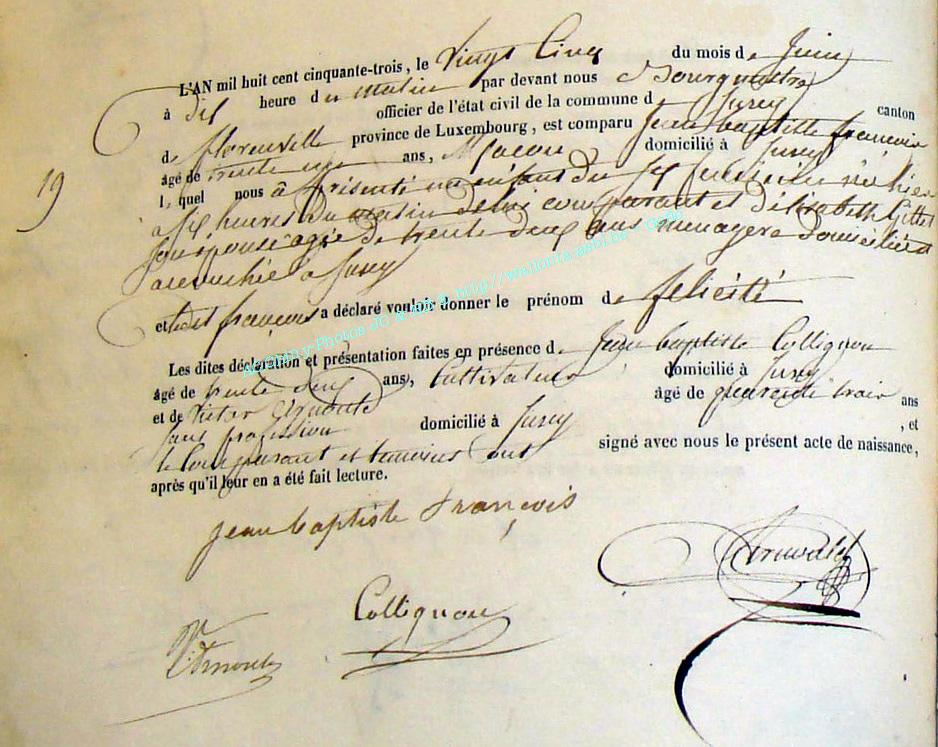 19
L'AN mil huit cent cinquante-trois, le Vingt Cinq du mois de Juin
à dix heure du matin par devant nous Bourgmestre
officier de l'état civil de la commune d Jusey canton
de florenville province de Luxembourg, est comparu Jean baptiste françois
âgé de trente ans, Maçon domicilié à Jusey
l,quel nous a présenté un enfant du né hier
a six heures du matin de lui comparant et d'Elisabeth Gillet
son epouse agée de trente deux ans menagere domiciliée
accouchée a Jusey
et françois a déclaré vouloir donner le prénom de felicité
Les dites déclaration et présentation faites en présence de Jean baptiste Collignon
âgé de trente deux ans, Cultivateur domicilié à Jusey
et de Victor Arnould âgé de quarente trois ans
sans profession domicilié à Jusey , et
le Comparant et temoins ont signé avec nous le présent acte de naissance,
après qu'il leur en a été fait lecture.
jean baptiste françois
Collignon
http://wallonia.asbl.be